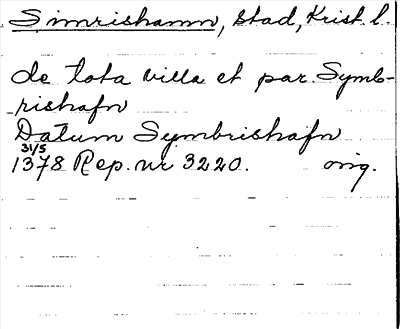 Simrishamn, stad, Krist. l.
de tota villa et par. Symb-
rishafn
Datum Symbrishafn
31/5
1378 Rep. nr 3220. orig.